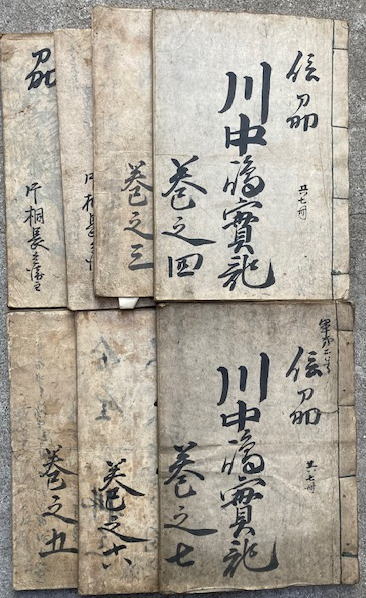 信刕
川中嶋實記
巻之四
共七冊
巻之三
片桐長
片桐長
信刕
川中嶋實記
巻之七
共七冊
巻之六
巻之五